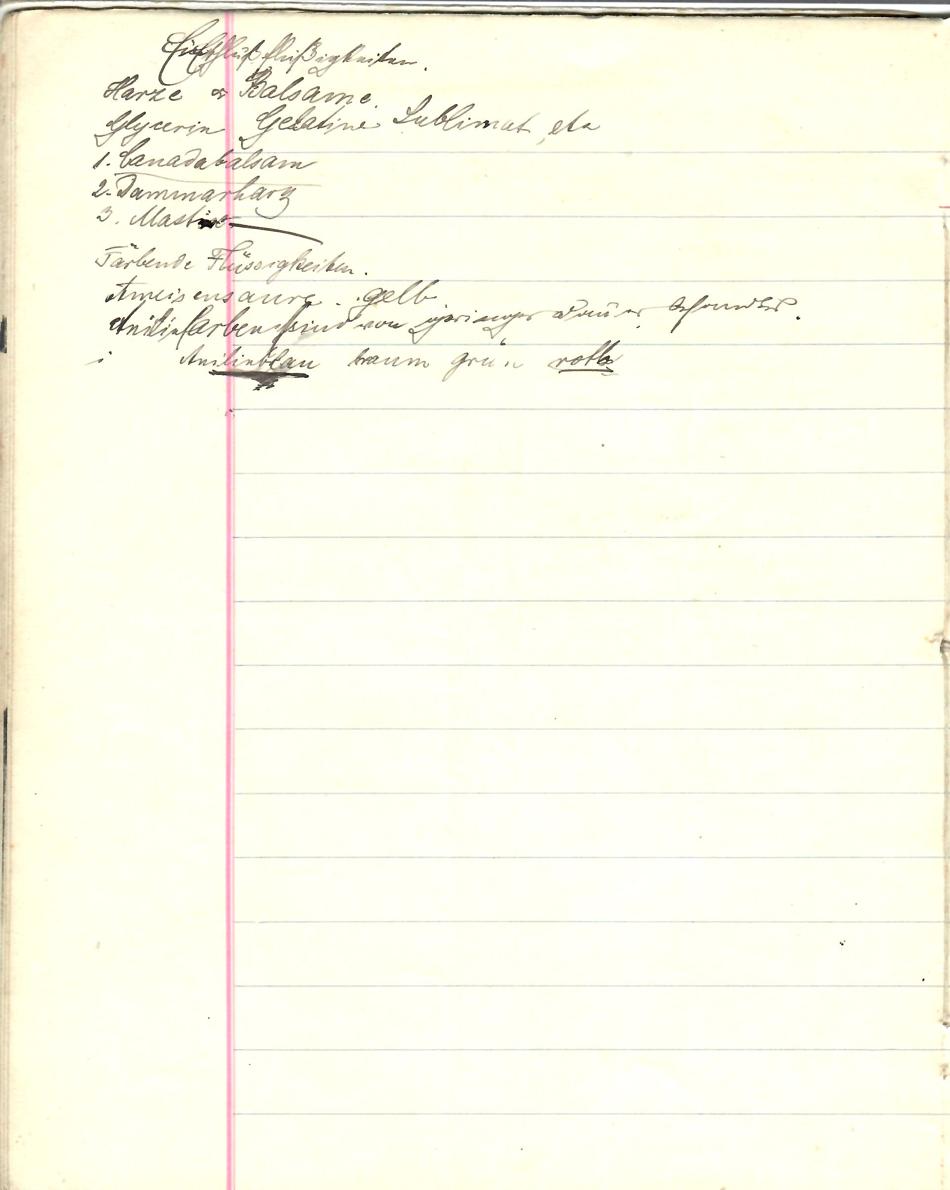 flüßigkeiten.
Harze & Balsame.
Glycerin Gelatine Sublimat, etc
1. Canadabalsam
2. Dammarharz
3. Mastix
Färbende Flüssigkeiten.
Ameisensäure . gelb
Anilinfarben sind von geringer Dauer
Anilinblau braun grün roth